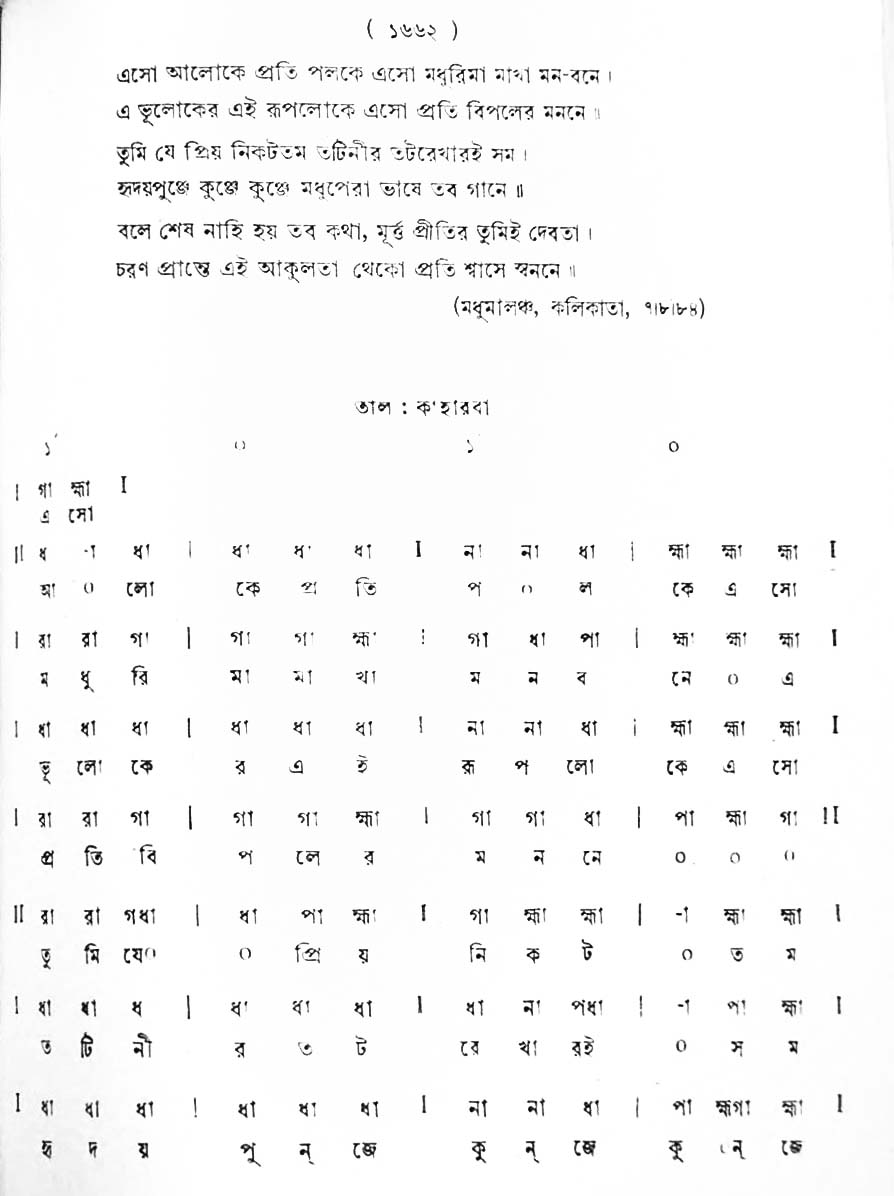 ( ১৬৬২ )
এসো আলোকে প্রতি পলকে এসো মধুরিমা মাখা মন-বনে ।
এ ভূলোকের এই রূপলোকে এসো প্রতি বিপলের মননে ॥
তুমি যে প্রিয় নিকটতম তটিনীর তটরেখারই সম ।
হৃদয়পুঞ্জে কুঞ্জে কুঞ্জে মধুপেরা ভাষে তব গানে ॥
বলে শেষ নাহি হয় তব কথা, মূর্ত্ত প্রীতির তুমিই দেবতা ।
চরণ প্রান্তে এই আকুলতা থেকো প্রতি শ্বাসে স্বননে ॥
(মধুমালঞ্চ, কলিকাতা, ৭।৮।৮৪)
তাল : ক'হারবা
১´ ০ ১ ০
| গা হ্মা I
এ সো
II ধ -া ধা | ধা ধা ধা I না না ধা | হ্মা হ্মা হ্মা I
আ ০ লো কে প্র তি প ০ ল কে এ সো
| রা রা গা | গা গা হ্মা I গা ধা পা | হ্মা হ্মা হ্মা I
ম ধু রি মা মা খা ম ন ব নে ০ এ
| ধা ধা ধা | ধা ধা ধা I না না ধা | হ্মা হ্মা হ্মা I
ভূ লো কে র এ ই রূ প লো কে এ সো
I রা রা গা | গা গা হ্মা I গা গা ধা | পা হ্মা গা II
প্র তি বি প লে র ম ন নে ০ ০ ০
II রা রা গধা | ধা পা হ্মা I গা হ্মা হ্মা | -া হ্মা হ্মা I
তু মি যে০ ০ প্রি য় নি ক ট ০ ত ম
I ধা ধা ধ | ধা ধা ধা I ধা না পধা | -া পা হ্মা I
ত টি নী র ত ট রে খা রই ০ স ম
I ধা ধা ধা | ধা ধা ধা I না না ধা | পা হ্মগা হ্মা I
হৃ দ য় পু ন্ জে কু ন্ জে কু ন্ জে